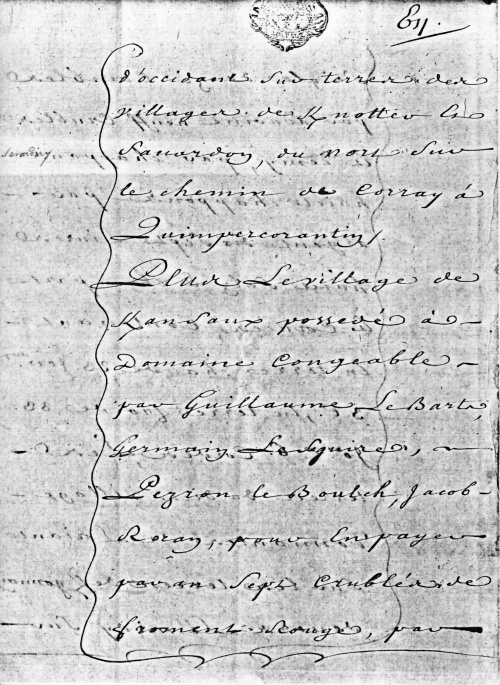 En.
d'occidant sur terres des
villages de Knottev Et
Savardoy, du nort Sur
le chemin de Corray à
Quimpercorantin,
Plus Le village de
Kansaux possedé à
Domaine Congeable
par Guillaume Le Barts,
Germain Lesquire,
Pezron le Boulch, Jacob
Roray, pour En payer
par an Sept Crublés de
froment Rougé, par